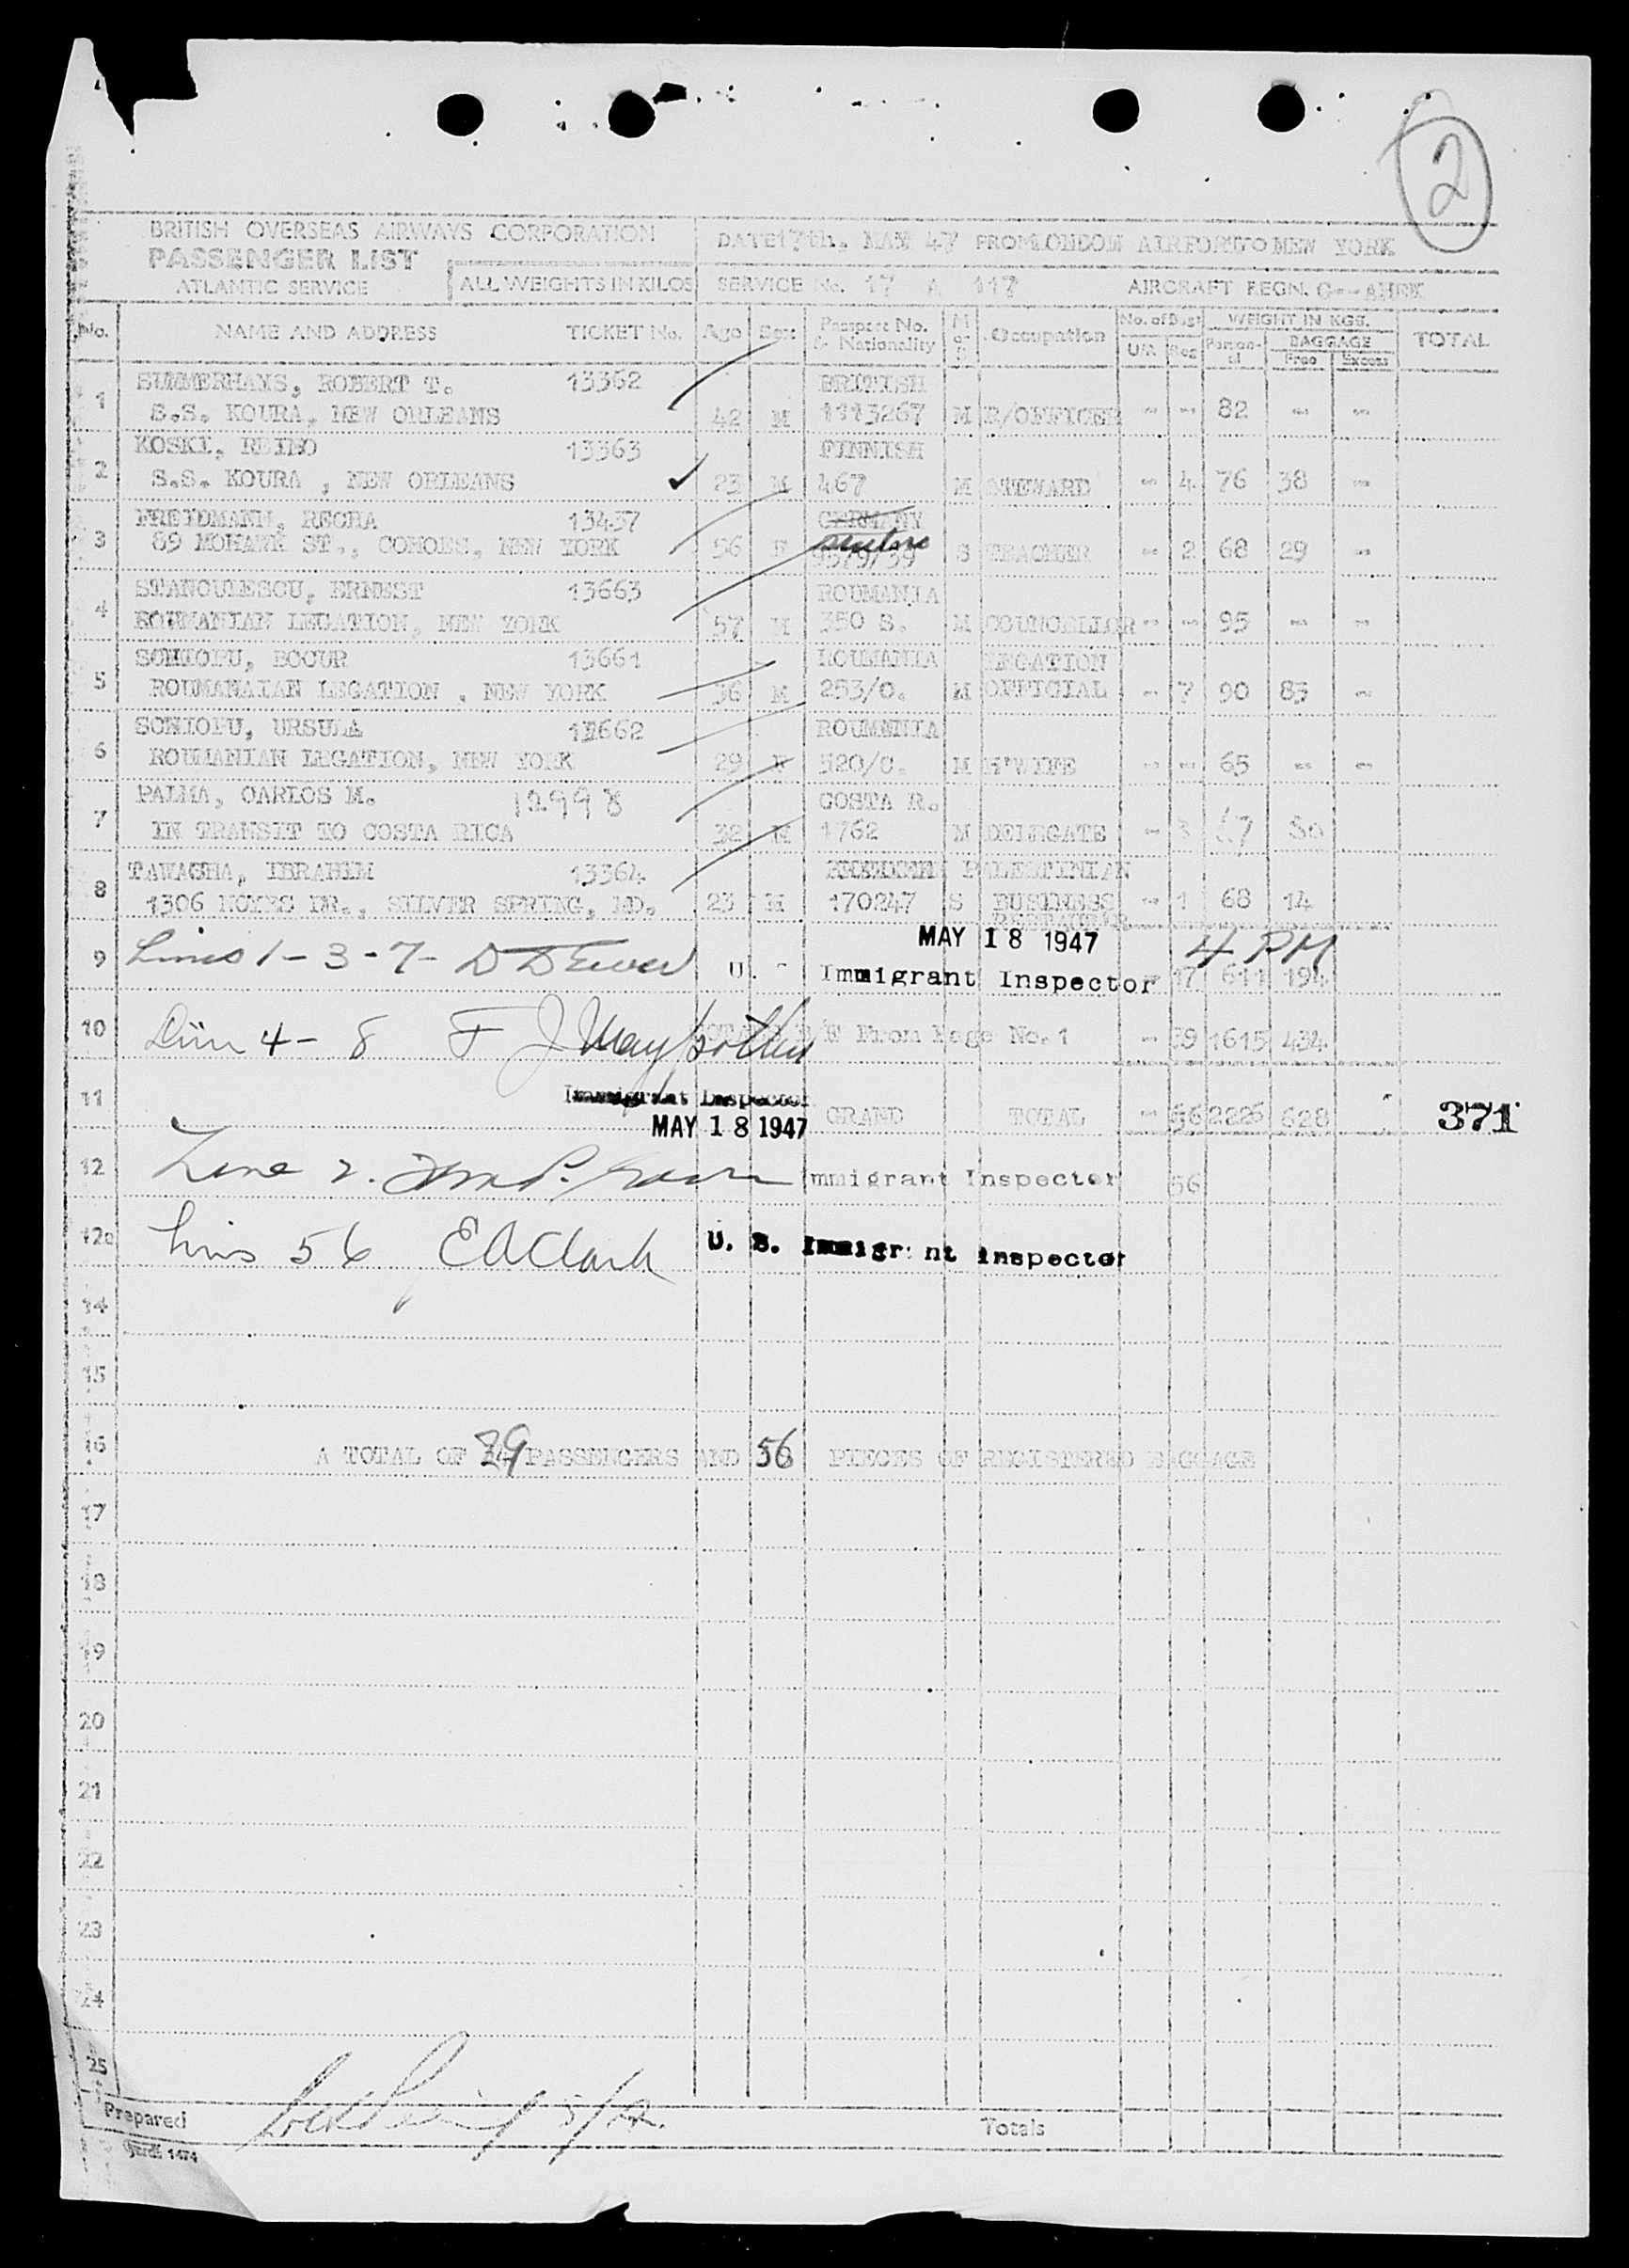 2
BRITISH OVERSEAS AIRWAYS CORPORATION
PASSENGER LIST
ATLANTIC SERVICE
ALL WEIGHTS IN KILOS
DATE 17th. MAY 47 FROM LONDON AIRPORT TO NEW YORK
SERVICE No. 17 A 117 AIRCRAFT REGN.
No. NAME AND ADDRESS TICKET No. Age Sex Passport No. & Nationality M or S Occupation No. of Bags U/A Reg WEIGHT IN KGS. Person-al BAGGAGE Free Excess TOTAL
SUMMERHAYS, ROBERT T. 13362 BRITISH
1 S.S. KOURA, NEW ORLEANS 42 M 1113267 M R/OFFICER - - 82 - -
KOSKI, REINO 13363 FINNISH
2 S.S. KOURA , NEW ORLEANS 23 M 467 M STEWARD - 4 76 38 -
FREIDMANN, RECHA 13437 GERMANY
3 89 MOHAWK ST., COHOES, NEW YORK 56 F S TEACHER - 2 68 29 -
STANCULESCU, ERNEST 13663 ROUMANIA
4 ROUMANIAN LEGATION, NEW YORK 57 M 350 S. M COUNCELLOR - - 95 - -
SCHIOPU, BOCUR 13661 ROUMANIA LEGATION
5 ROUMANAIAN LEGATION , NEW YORK 36 M 253/C. M OFFICIAL - 7 90 83 -
SCHIOPU, URSULA 13662 ROUMANIA
6 ROUMANIAN LEGATION, NEW YORK 29 F 320/C. M H'WIFE - - 65 - -
PALMA, CARLOS M. 12998 COSTA R.
7 IN TRANSIT TO COSTA RICA 32 M 1762 M DELEGATE - 3 67 30
TAWASHA, IBRAHIM 13364 PALESTINIAN
8 1306 NOYES DR., SILVER SPRING, MD. 23 M 170247 S BUSINESS - 1 68 14
MAY 18 1947 4 PM
9 Lines 1-3-7- U. Immigrant Inspector 17 611 194
10 4-8 F J From Page No. 1 - 39 1615 434
Immigrant Inspector
11 MAY 18 1947 GRAND TOTAL - 56 2226 628 371
12 Line 2. Immigrant Inspector 56
12a Lines 56 E A Clark U. S. Immigrant Inspector
14
15
16 A TOTAL OF 29 PASSENGERS AND 56 PIECES OF REGISTERED BAGGAGE
17
18
19
20
21
22
23
24
25
Prepared Totals
1474